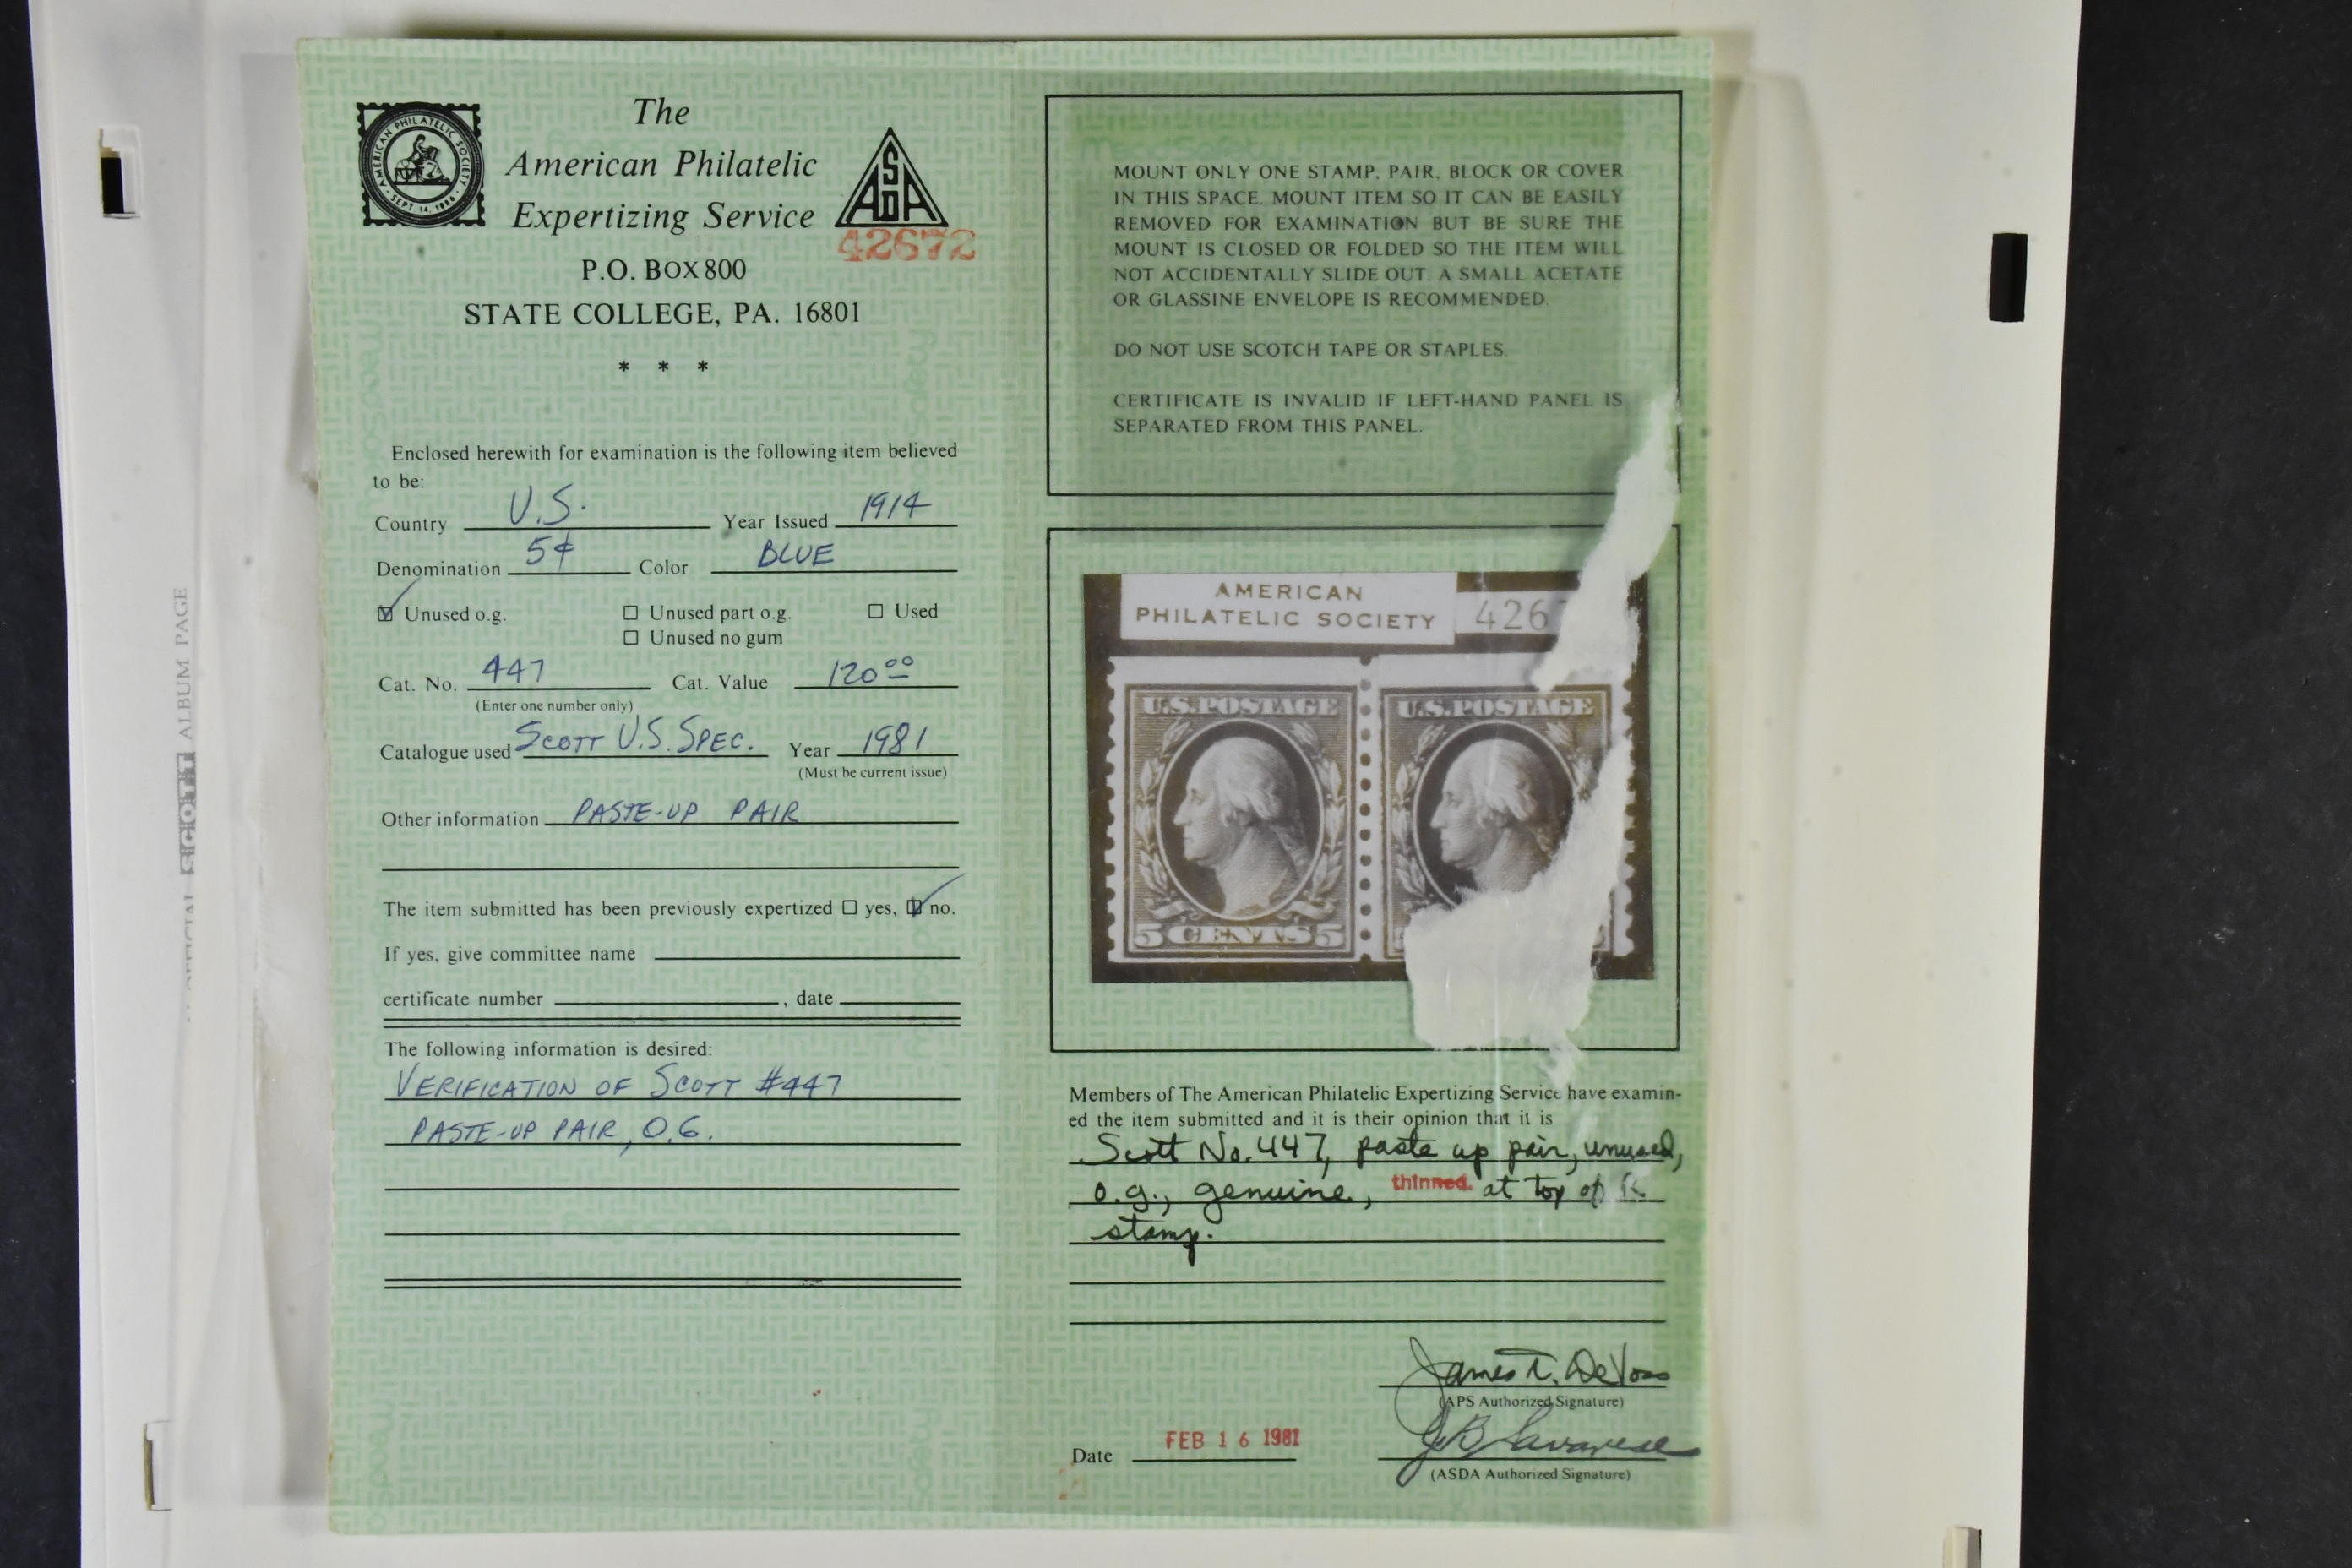 The
American Philatelic
Expertizing Service
AMERICAN PHILATELIC SOCIETY
SEPT. 14, 1886
ASDA
42672
P.O. BOX 800
STATE COLLEGE, PA. 16801
* * *
Enclosed herewith for examination is the following item believed
to be:
Country U.S. Year Issued 1914
Denomination 5¢ Color BLUE
Unused o.g. Unused part o.g. Used
Unused no gum
Cat. No. 447 Cat. Value 120 00
(Enter one number only)
Catalogue used SCOTT U.S. SPEC. Year 1981
(Must be current issue)
Other information PASTE-UP PAIR
The item submitted has been previously expertized yes, no.
If yes, give committee name
certificate number , date
The following information is desired:
VERIFICATION OF SCOTT #447
PASTE-UP PAIR, O.G.
MOUNT ONLY ONE STAMP, PAIR, BLOCK OR COVER
IN THIS SPACE. MOUNT ITEM SO IT CAN BE EASILY
REMOVED FOR EXAMINATION BUT BE SURE THE
MOUNT IS CLOSED OR FOLDED SO THE ITEM WILL
NOT ACCIDENTALLY SLIDE OUT. A SMALL ACETATE
OR GLASSINE ENVELOPE IS RECOMMENDED.
DO NOT USE SCOTCH TAPE OR STAPLES.
CERTIFICATE IS INVALID IF LEFT-HAND PANEL IS
SEPARATED FROM THIS PANEL.
AMERICAN
PHILATELIC SOCIETY 426
U.S. POSTAGE U.S. POSTAGE
5 CENTS 5
Members of The American Philatelic Expertizing Service have examin-
ed the item submitted and it is their opinion that it is
Scott No. 447, paste up pair, unused,
o.g., genuine, thinned at top of R.
stamp.
James T. DeVoss
(APS Authorized Signature)
Date FEB 16 1981
(ASDA Authorized Signature)
SCOTT ALBUM PAGE